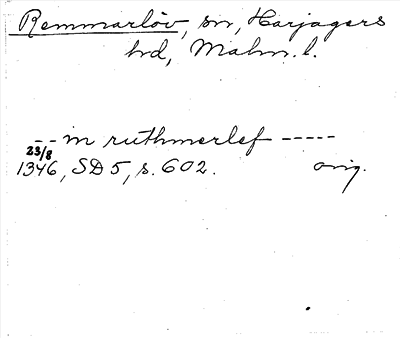 Remmarlöv, sn, Harjagers
hd, Malm. l.
-- m ruthmerlef -----
23/8
1346, SD 5, s. 602. orig.